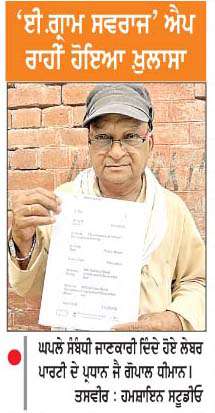 ‘ਈ.ਗ੍ਰਾਮ ਸਵਰਾਜ’ ਐਪ
ਰਾਹੀਂ ਹੋਇਆ ਖ਼ੁਲਾਸਾ
ਘਪਲੇ ਸੰਬੰਧੀ ਜਾਣਕਾਰੀ ਦਿੰਦੇ ਹੋਏ ਲੇਬਰ
ਪਾਰਟੀ ਦੇ ਪ੍ਰਧਾਨ ਜੈ ਗੋਪਾਲ ਧੀਮਾਨ।
ਤਸਵੀਰ : ਹਮਸ਼ਾਇਨ ਸਟੂਡੀਓ